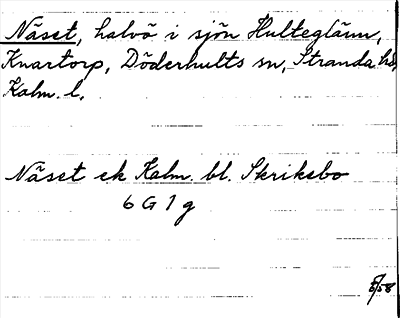 Näset, halvö i sjön Hulteglänn,
Knartorp, Döderhults sn, Stranda hd,
Kalm. l.
Näset ek Kalm. bl. Skriksbo
6 G 1 g
5/58